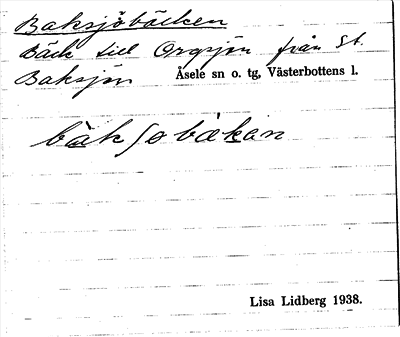 Baksjöbäcken
Bäck till Orgsjön från St.
Baksjön Åsele sn o. tg, Västerbottens l.
bàkʃobækan
Lisa Lidberg 1938.